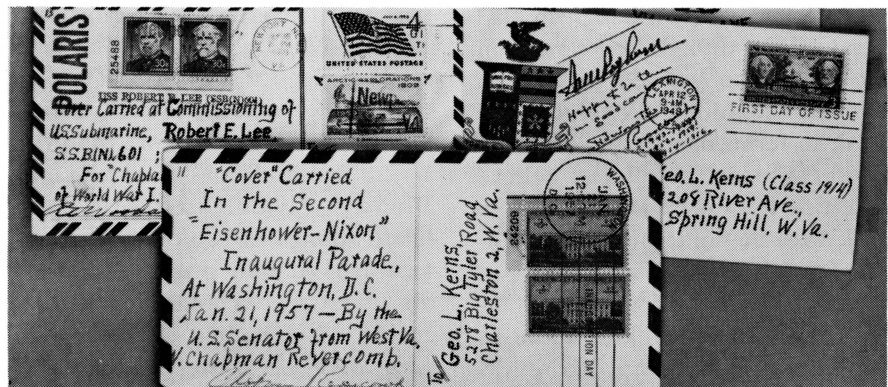 POLARIS
25488
30¢ 30¢
USS ROBERT E. LEE (SSB(N)601)
Cover Carried at Commissioning of
U.S. Submarine, Robert E. Lee
S.S.B(N).601 ;
For "Chapla
of World War I.
4¢
UNITED STATES POSTAGE
ARCTIC EXPLORATIONS
1909
New
4¢
Happy
to
small
LEXINGTON
APR 12
9-AM
1948
FIRST DAY OF ISSUE
Geo. L. Kerns (Class 1914)
208 River Ave.,
Spring Hill, W. Va.
"Cover" Carried
In the Second
"Eisenhower-Nixon"
Inaugural Parade,
At Washington, D.C.
Jan. 21, 1957 — By the
U.S. Senator from West Va.
W. Chapman Revercomb.
To
Geo. L. Kerns,
5278 Big Tyler Road
Charleston 2, W. Va.
24209
WASHINGTON
JAN
12
D.C.
INAUGURATION DAY